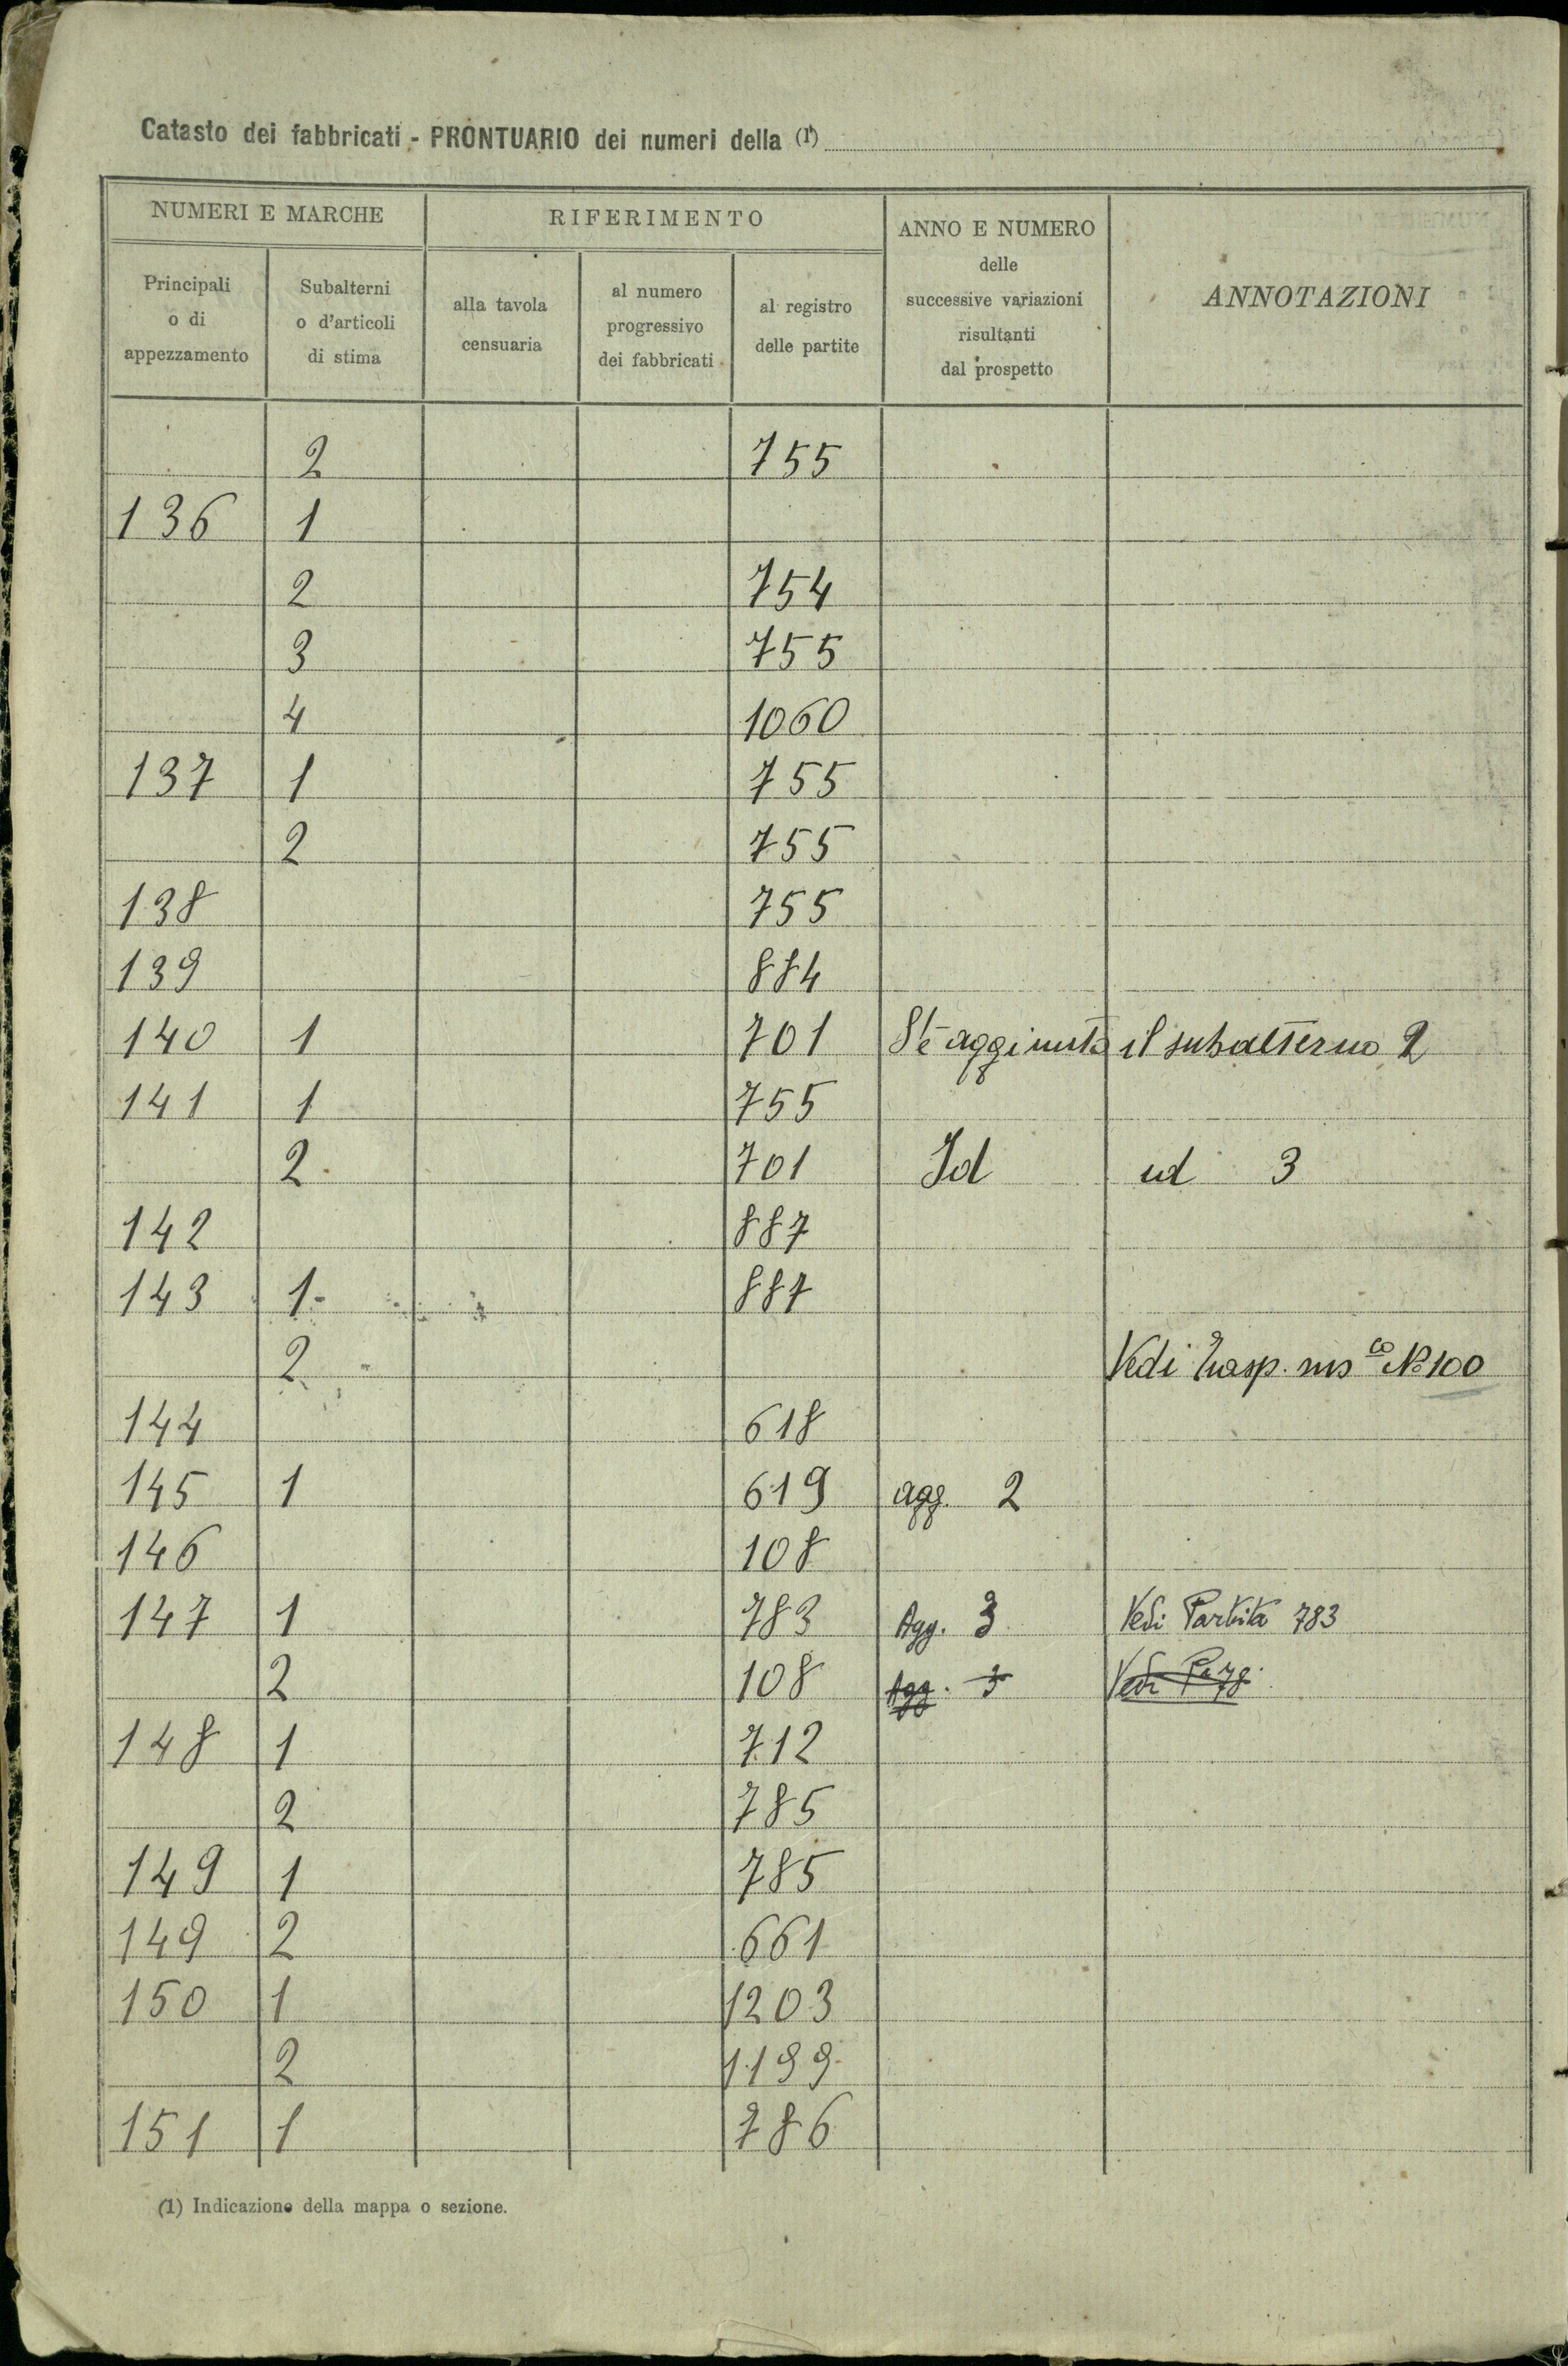 Catasto dei fabbricati - PRONTUARIO dei numeri della (1)
NUMERI E MARCHE
RIFERIMENTO
ANNO E NUMERO
delle
successive variazioni
risultanti
dal prospetto
ANNOTAZIONI
Principali
o di
appezzamento
Subalterni
o d'articoli
di stima
alla tavola
censuaria
al numero
progressivo
dei fabbricati
al registro
delle partite
2 755
136 1
2 754
3 755
4 1060
137 1 755
2 755
138 755
139 884
140 1 701 S'è aggiunto il subalterno 2
141 1 755
2 701 Id id 3
142 887
143 1 887
2 Vedi N° 100
144 618
145 1 619 agg. 2
146 108
147 1 783 Agg. 3 Vedi Partita 783
2 108 Agg. 3 Vedi
148 1 712
2 785
149 1 785
149 2 661
150 1 1203
2 1199
151 1 786
(1) Indicazione della mappa o sezione.